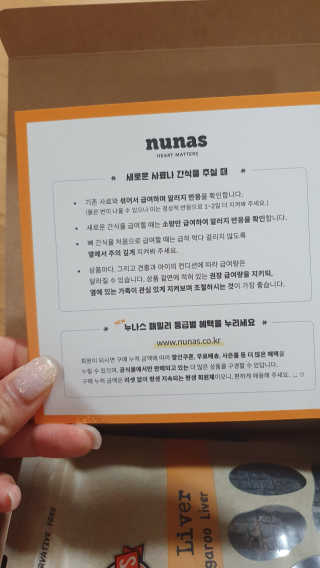 nunas
HEART MATTERS
새로운 사료나 간식을 주실 때
기존 사료와 섞어서 급여하며 알러지 반응을 확인합니다.
(묽은 변이 나올 수 있으나 이는 정상적 반응으로 1~2일 더 지켜봐 주세요.)
새로운 간식을 급여할 때는 소량만 급여하여 알러지 반응을 확인합니다.
뼈 간식을 처음으로 급여할 때는 급히 먹다 걸리지 않도록
옆에서 주의 깊게 지켜봐 주세요.
상품마다, 그리고 견종과 아이의 컨디션에 따라 급여량은
달라질 수 있습니다. 상품 겉면에 적혀 있는 권장 급여량을 지키되,
옆에 있는 가족이 관심 있게 지켜보며 조절하시는 것이 가장 좋습니다.
NEW
누나스 패밀리 등급별 혜택을 누리세요
www.nunas.co.kr
회원이 되시면 구매 누적 금액에 따라 할인쿠폰, 무료배송, 사은품 등 더 많은 혜택을
누릴 수 있으며, 공식몰에서만 판매되고 있는 더 많은 상품을 구경할 수 있답니다.
구매 누적 금액은 리셋 없이 평생 지속되는 평생 회원제이오니, 편하게 애용해 주세요.
Liver
garoo Liver
RVATIVE FREE